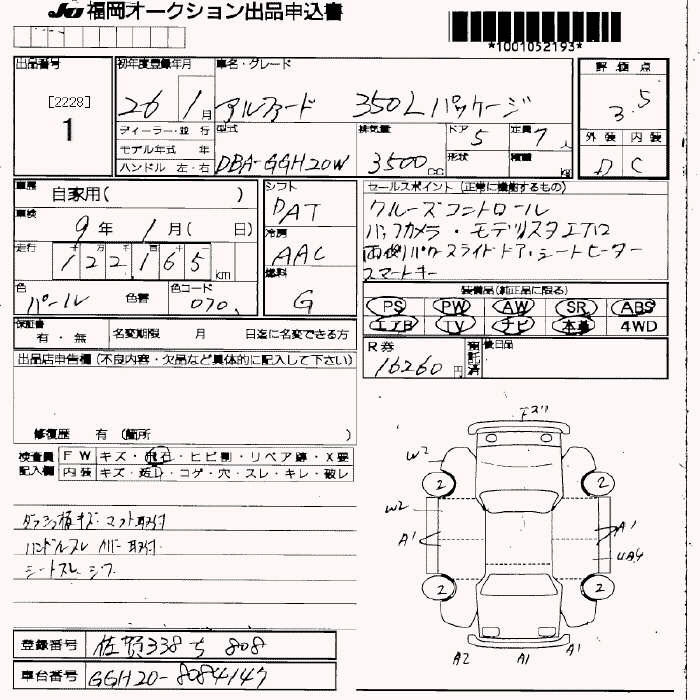 JU 福岡オークション出品申込書
*1001052193*
出品番号
[2228]
1
初年度登録年月
26 1月
車名・グレード
アルファード 350Lパッケージ
評価点
3.5
ディーラー・並行
モデル年式 年
ハンドル 左・右
型式
DBA-GGH20W
排気量
3500cc
ドア
5
形状
定員
7人
積載
kg
外装 内装
D C
車歴
自家用( )
車検
9年 1月( 日)
走行
122,165km
色
パール
色替
色コード
070
シフト
DAT
冷房
AAC
燃料
G
セールスポイント(正常に機能するもの)
クルーズコントロール
バックカメラ・モデリスタエアロ
両側パワースライドドア・シートヒーター
スマートキー
装備品(純正品に限る)
PS PW AW SR ABS
エアB TV ナビ 本革 4WD
保証書
有・無
名変期限 月 日迄に名変できる方
R券
16260円
預託済
後日品
出品店申告欄(不良内容・欠品など具体的に記入して下さい)
修復歴 有 (箇所 )
検査員記入欄
FW キズ・飛石・ヒビ割・リペア跡・X要
内装 キズ・汚レ・コゲ・穴・スレ・キレ・破レ
マット取付
ハンドルスレ カバー取付
シートスレ シワ
W2
2
2
W2
A1
A1
UA4
2
2
A2
A1
A1
登録番号
佐賀338 ち 808
車台番号
GGH20-8084147